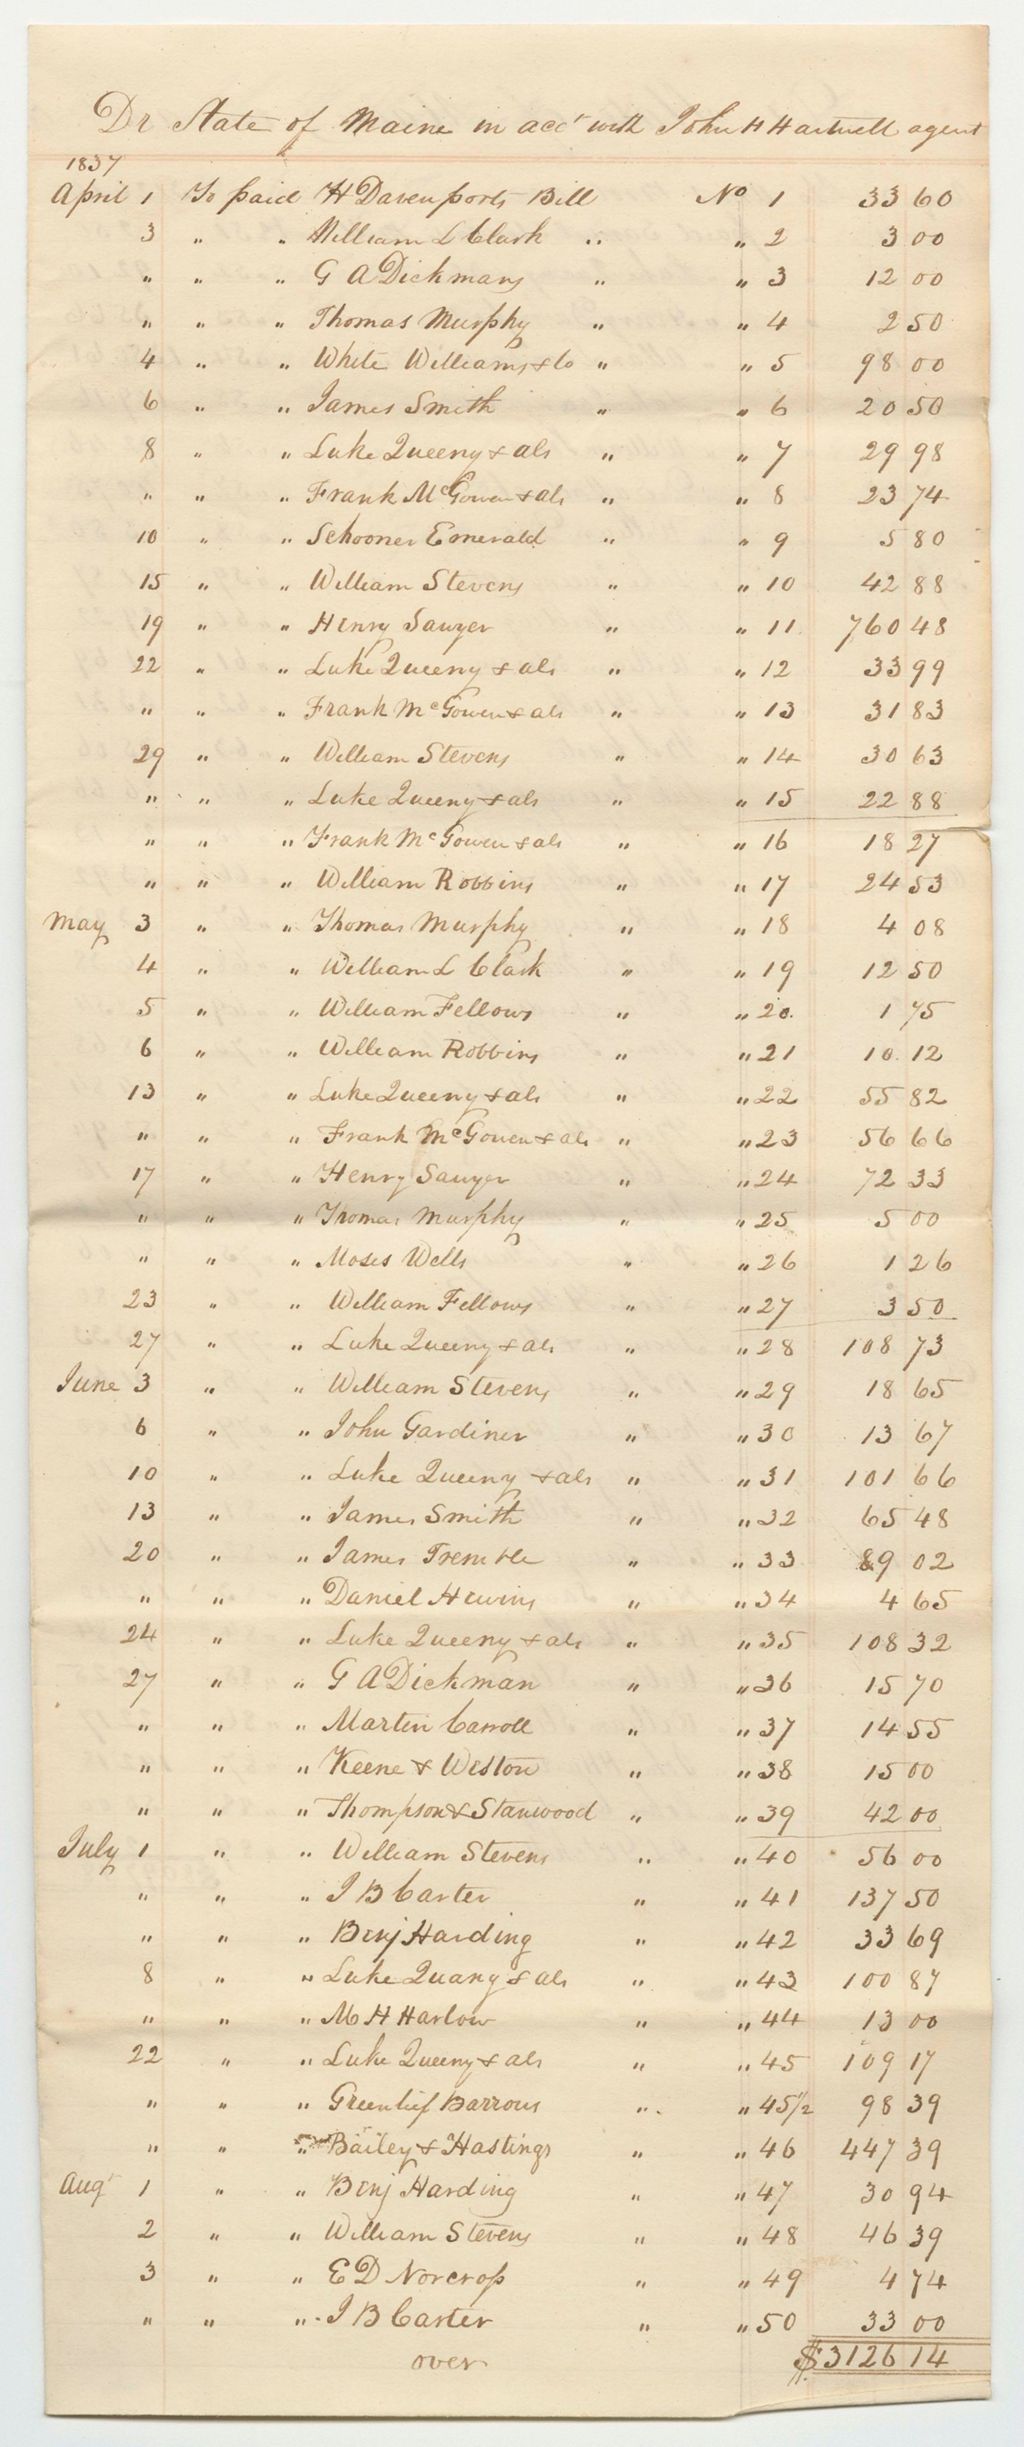 Dr State of Maine in acct with John H Hartwell agent
1837
April 1 To paid H Davenports Bill No 1 33 60
3 " " William L Clark " " 2 3 00
" " " G A Dickmans " " 3 12 00
" " " Thomas Murphy " " 4 2 50
4 " " White Williams & Co " " 5 98 00
6 " " James Smith " " 6 20 50
8 " " Luke Queeny & als " " 7 29 98
" " " Frank McGowen & als " " 8 23 74
10 " " Schooner Emerald " " 9 5 80
15 " " William Stevens " " 10 42 88
19 " " Henry Sawyer " " 11 760 48
22 " " Luke Queeny & als " " 12 33 99
" " " Frank McGowen & als " " 13 31 83
29 " " William Stevens " " 14 30 63
" " " Luke Queeny & als " " 15 22 88
" " " Frank McGowen & als " " 16 18 27
" " " William Robbins " " 17 24 53
May 3 " " Thomas Murphy " " 18 4 08
4 " " William L Clark " " 19 12 50
5 " " William Fellows " " 20 1 75
6 " " William Robbins " " 21 10 12
13 " " Luke Queeny & als " " 22 55 82
" " " Frank McGowen & als " " 23 56 66
17 " " Henry Sawyer " " 24 72 33
" " " Thomas Murphy " " 25 5 00
" " " Moses Wells " " 26 1 26
23 " " William Fellows " " 27 3 50
27 " " Luke Queeny & als " " 28 108 73
June 3 " " William Stevens " " 29 18 65
6 " " John Gardiner " " 30 13 67
10 " " Luke Queeny & als " " 31 101 66
13 " " James Smith " " 32 65 48
20 " " James Tremble " " 33 89 02
" " " Daniel Hewins " " 34 4 65
24 " " Luke Queeny & als " " 35 108 32
27 " " G A Dickman " " 36 15 70
" " " Martin Carroll " " 37 14 55
" " " Keene & Weston " " 38 15 00
" " " Thompson & Stanwood " " 39 42 00
July 1 " " William Stevens " " 40 56 00
" " " J B Carter " " 41 137 50
" " " Benj Harding " " 42 33 69
8 " " Luke Quany & als " " 43 100 87
" " " M H Harlow " " 44 13 00
22 " " Luke Queeny & als " " 45 109 17
" " " Greenlief Barrows " " 45 1/2 98 39
" " " Bailey & Hastings " " 46 447 39
Augt 1 " " Benj Harding " " 47 30 94
2 " " William Stevens " " 48 46 39
3 " " E D Norcross " " 49 4 74
" " " J B Carter " " 50 33 00
over $3126 14